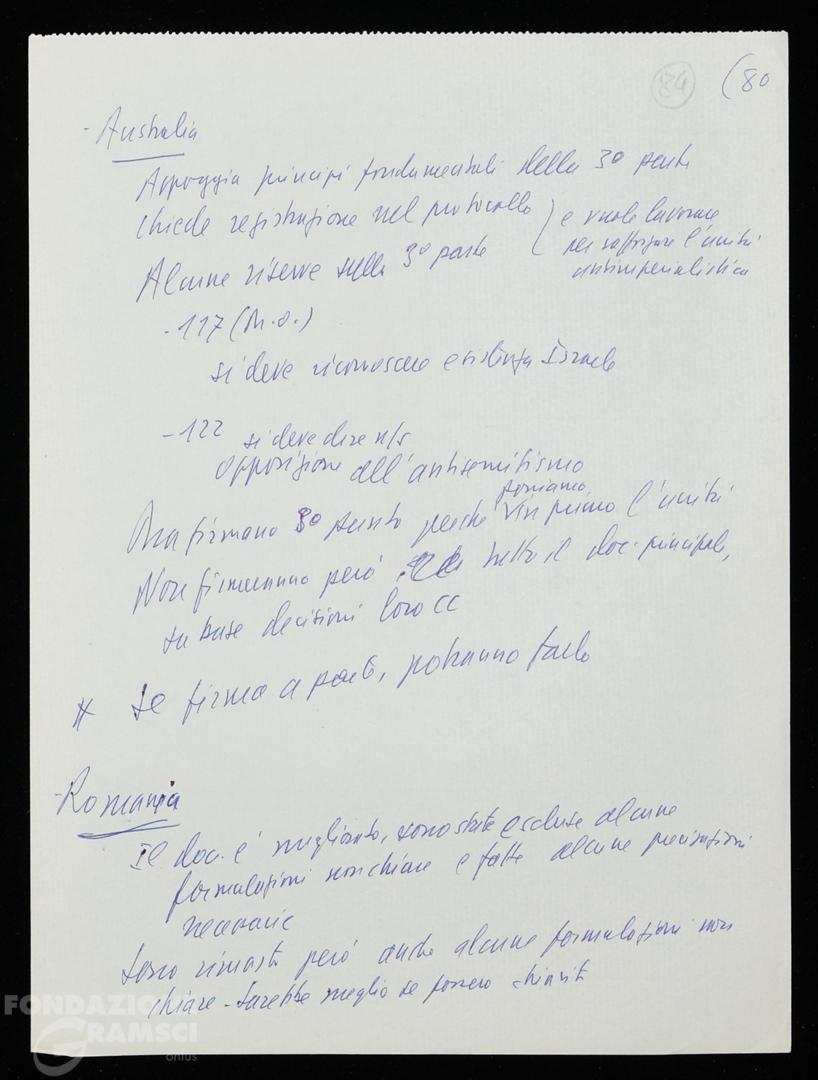 84 (80
- Australia
Appoggia principi fondamentali della 3º parte
chiede registrazione nel protocollo
e vuole lavorare
per rafforzare l'unità
antimperialistica
Alcune riserve sulla 3º parte
- 117 (M.O.)
si deve riconoscere esistenza Israele
- 122 si deve dire n/s
opposizione all'antisemitismo
Ma firmano 3º punto perché poniamo in primo l'unità
Non firmeranno però tutto il doc. principale,
su base decisioni loro CC
Se firma a parte, potranno farlo
- Romania
Il doc. è migliorato, sono state escluse alcune
formulazioni non chiare e fatte alcune precisazioni
necessarie
Sono rimaste però anche alcune formulazioni non
chiare - Sarebbe meglio se fossero chiarite
FONDAZIONE
GRAMSCI
onlus